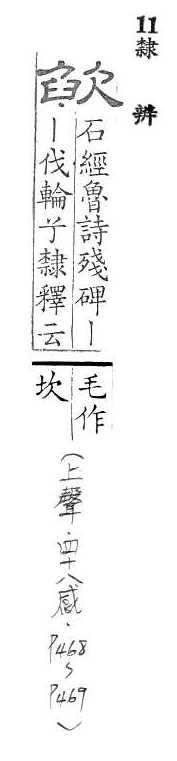 11隸辨
欿
石經魯詩殘碑丨
丨伐輪兮隸釋云
毛作
坎
(上聲·四十八感·P468~P469)